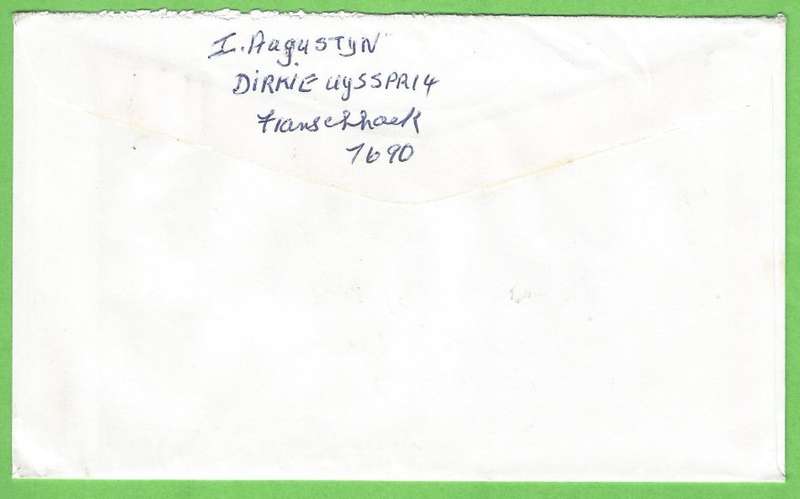 I. Augustyn
DIRKIE UYSSPR14
Franschhoek
7690